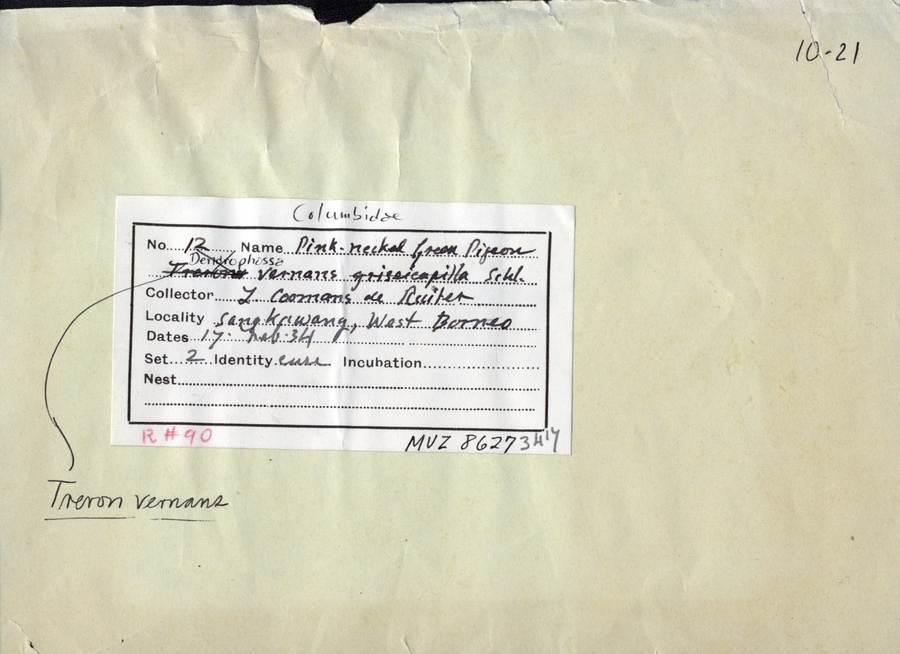 10-21
Columbidae
No. 12 Name Pink-necked Green Pigeon
Dendrophassa
Treron vernans griseicapilla Schl.
Collector L Coomans de Ruiter
Locality Sangkawang, West Borneo
Dates 17 Feb 34
Set 2 Identity Incubation
Nest
R #90
MVZ 8627
Treron vernans